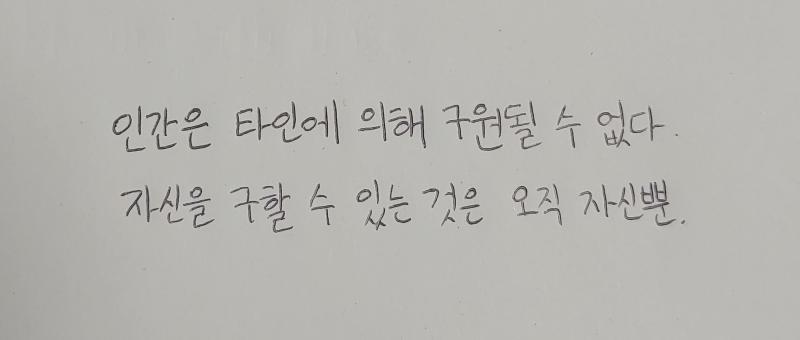 인간은 타인에 의해 구원될 수 없다.
자신을 구할 수 있는 것은 오직 자신뿐.